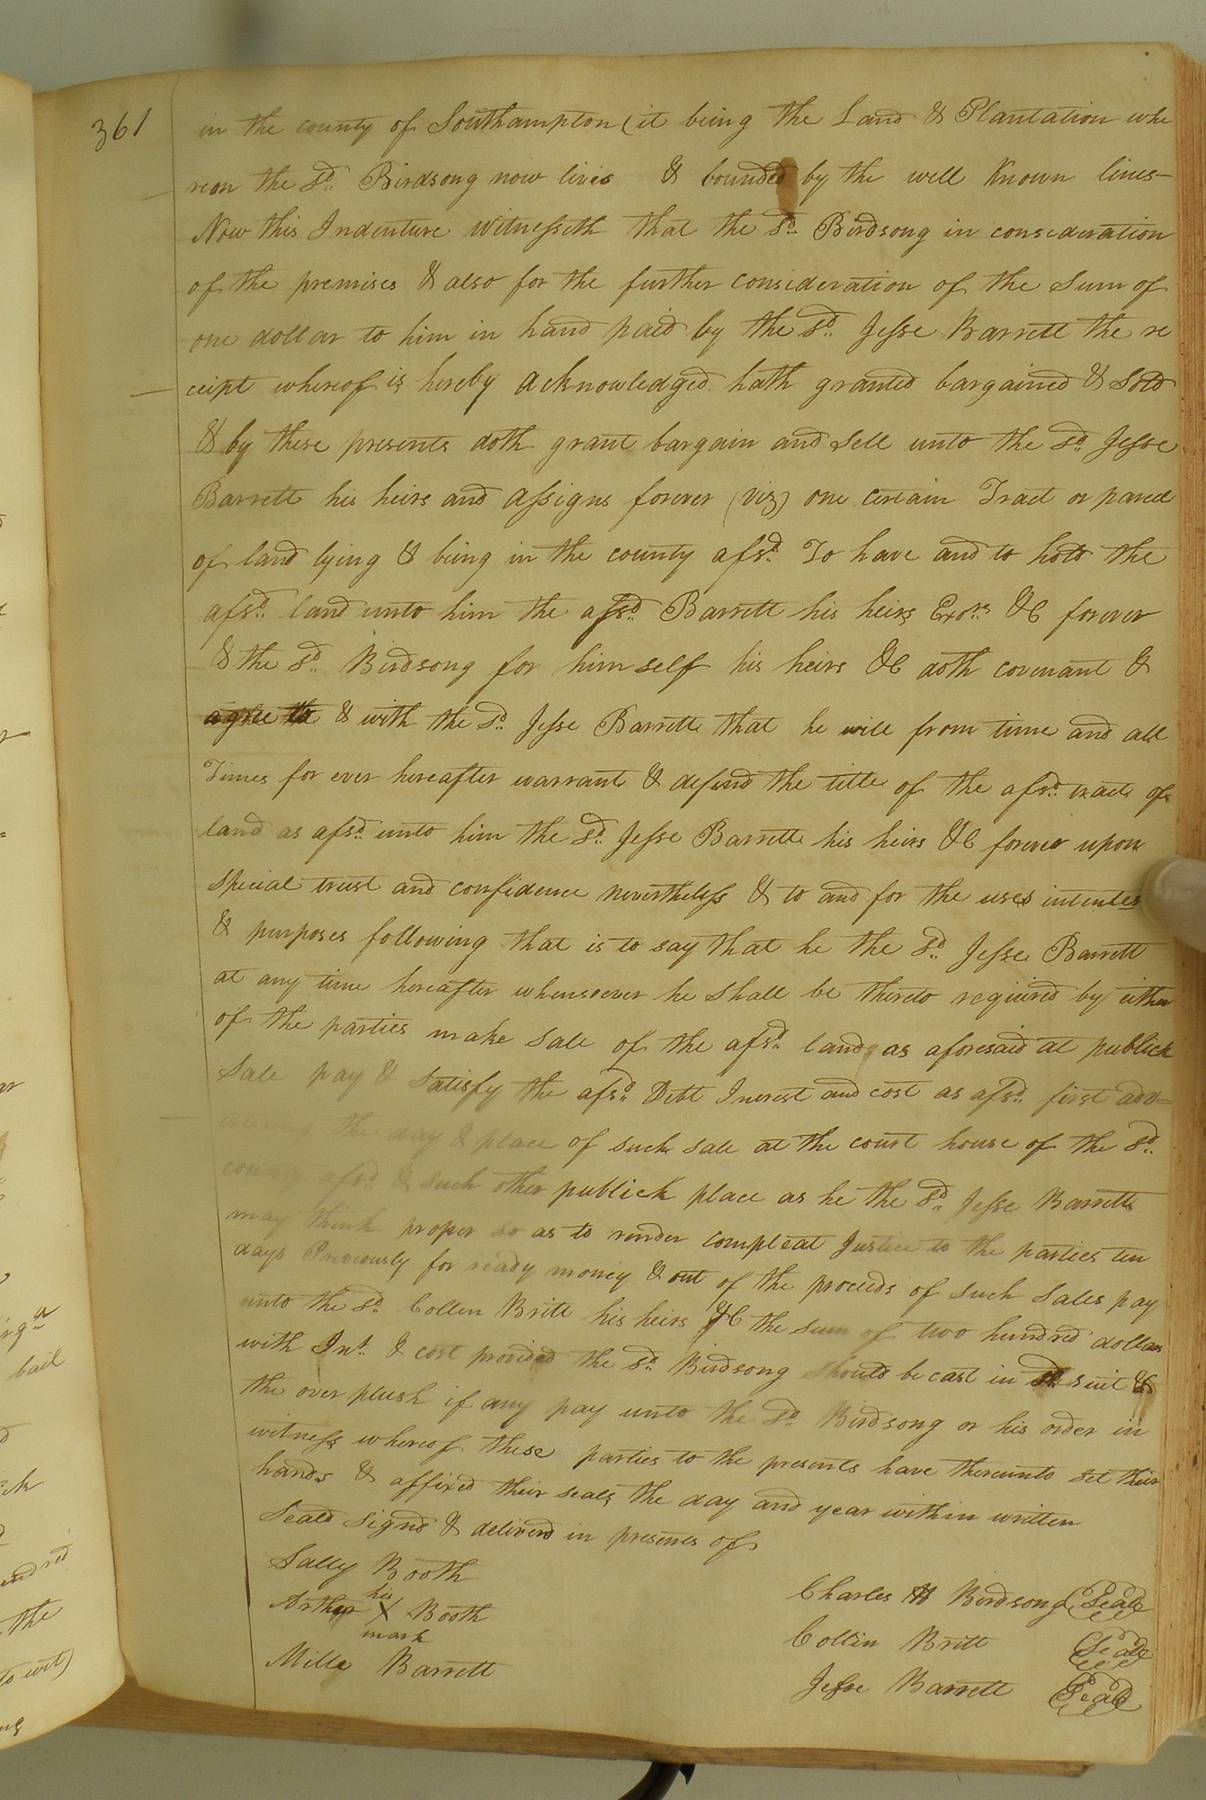 361
in the county of Southampton (it being the Land & Plantation whe
reon the Sd. Birdsong now lives & bounded by the well Known lines—
Now this Indenture witnesseth that the Sd. Birdsong in consideration
of the premises & also for the further consideration of the Sum of
one dollar to him in hand paid by the Sd. Jesse Barrett the re
ceipt whereof is hereby acknowledged hath granted bargained & Sold
& by these presents doth grant bargain and Sell unto the Sd. Jesse
Barrett his heirs and assigns forever (viz) one certain Tract or parcel
of land lying & being in the county afsd. To have and to hold the
afsd. land unto him the afsd. Barrett his heirs Exors. &C forever
& the Sd. Birdsong for himself his heirs &C doth covenant &
agree to & with the Sd. Jesse Barrett that he will from time and all
Times for ever hereafter warrant & defend the title of the afsd. tract of
land as afsd. unto him the Sd. Jesse Barrett his heirs &C forever upon
special trust and confidence nevertheless & to and for the uses intentes
& purposes following that is to say that he the Sd. Jesse Barrett
at any time hereafter whensoever he shall be thereto required by either
of the parties make Sale of the afsd. land as aforesaid at publick
Sale pay & satisfy the afsd. Debt Interest and cost as afsd. first add=
the day & place of such sale at the court house of the Sd.
county afsd. & such other publick place as he the Sd. Jesse Barrett
may think proper so as to render compleat Justice to the parties ten
days Previously for ready money & out of the proceeds of such Sales pay
unto the Sd. Collin Britt his heirs &C the sum of two hundred dollars
with Int. & cost provided the Sd. Birdsong should be cast in Sd. suit &
the over plush if any pay unto the Sd. Birdsong or his order in
witness whereof these parties to the presents have thereunto set their
hands & affixed their seals the day and year within written
Seald signd & deliverd in presents of
Sally Booth
Arthur his X mark Booth
Mills Barrett
Charles H Birdsong (Seal)
Collin Britt (Seal)
Jesse Barrett (Seal)